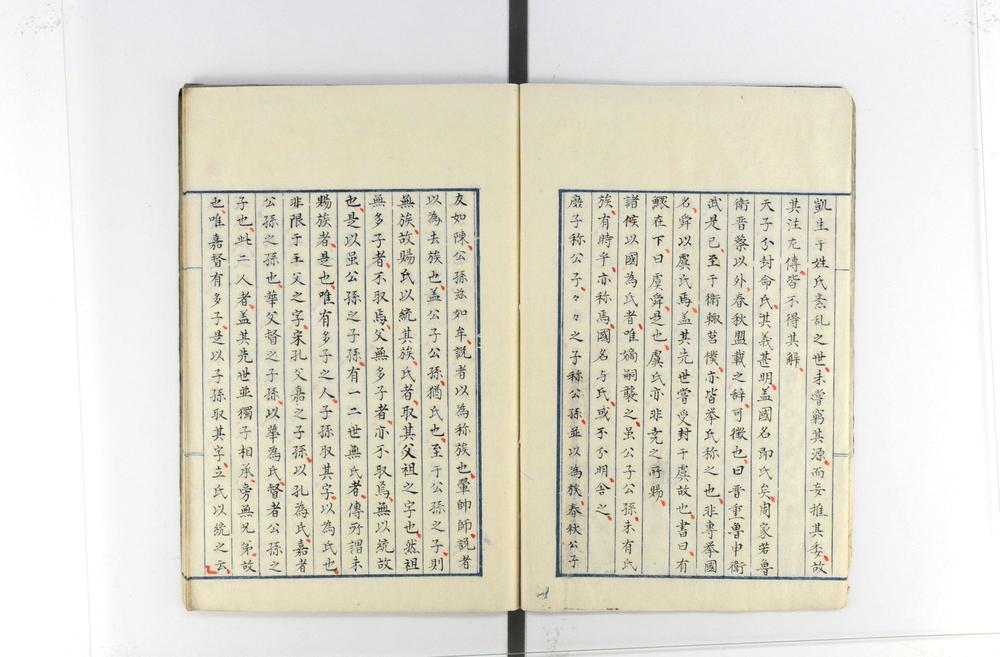 凱生于姓氏紊乱之世未嘗窮其源而妄推其委故
其注左傳皆不得其解
天子分封命氏其義甚明蓋國名即氏矣周家若魯
衛晋蔡以外春秋盟載之辞可徴也曰晋重魯申衛
武是已至于衛輙莒僕亦皆挙氏称之也非專挙國
名舜以虞氏焉蓋其先世嘗受封于虞故也書曰有
鰥在下曰虞舜是也虞氏亦非尭之所賜
諸侯以國為氏者唯嫡嗣襲之虽公子公孫未有氏
族有時乎亦称焉國名与氏或不分明舎之
庶子称公子々々之子称公孫並以為族春秋公子
友如陳公孫茲如牟説者以為称族也翬帥師説者
以為去族也蓋公子公孫猶氏也至于公孫之子則
無族故賜氏以統其族氏者取其父祖之字也然祖
無多子者不取焉父無多子者亦不取焉無以統故
也是以虽公孫之子孫有一二世無氏者傳所謂未
賜族者是也唯有多子之人子孫取其字以為氏也
非限于王父之字宋孔父嘉之子孫以孔為氏嘉者
公孫之孫也華父督之子孫以華為氏督者公孫之
子也此二人者蓋其先世並獨子相承旁無兄弟故
也唯嘉督有多子是以子孫取其字立氏以統之云